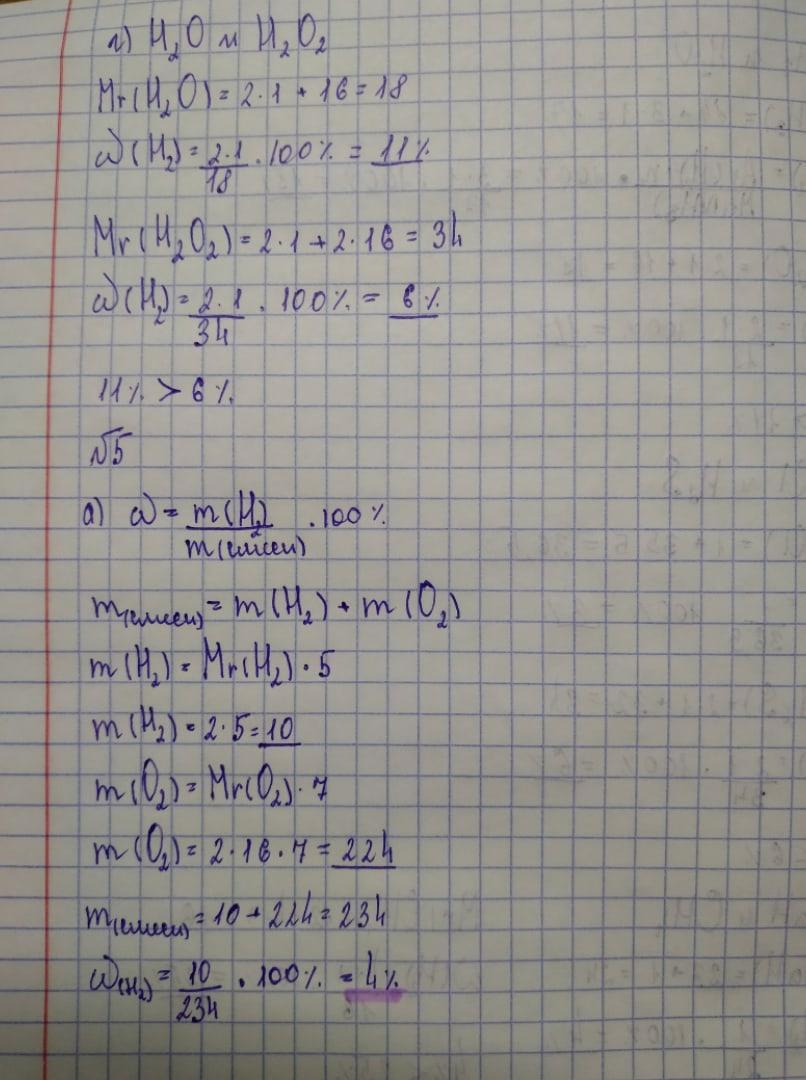 г) H₂O и H₂O₂
Mr(H₂O) = 2·1 + 16 = 18
ω(H₂) = 2·1/18 · 100% = 11%
Mr(H₂O₂) = 2·1 + 2·16 = 34
ω(H₂) = 2·1/34 · 100% = 6%
11% > 6%
№5
а) ω = m(H₂)/m(смеси) · 100%
m(смеси) = m(H₂) + m(O₂)
m(H₂) = Mr(H₂)·5
m(H₂) = 2·5 = 10
m(O₂) = Mr(O₂)·7
m(O₂) = 2·16·7 = 224
m(смеси) = 10 + 224 = 234
ω(H₂) = 10/234 · 100% = 4%